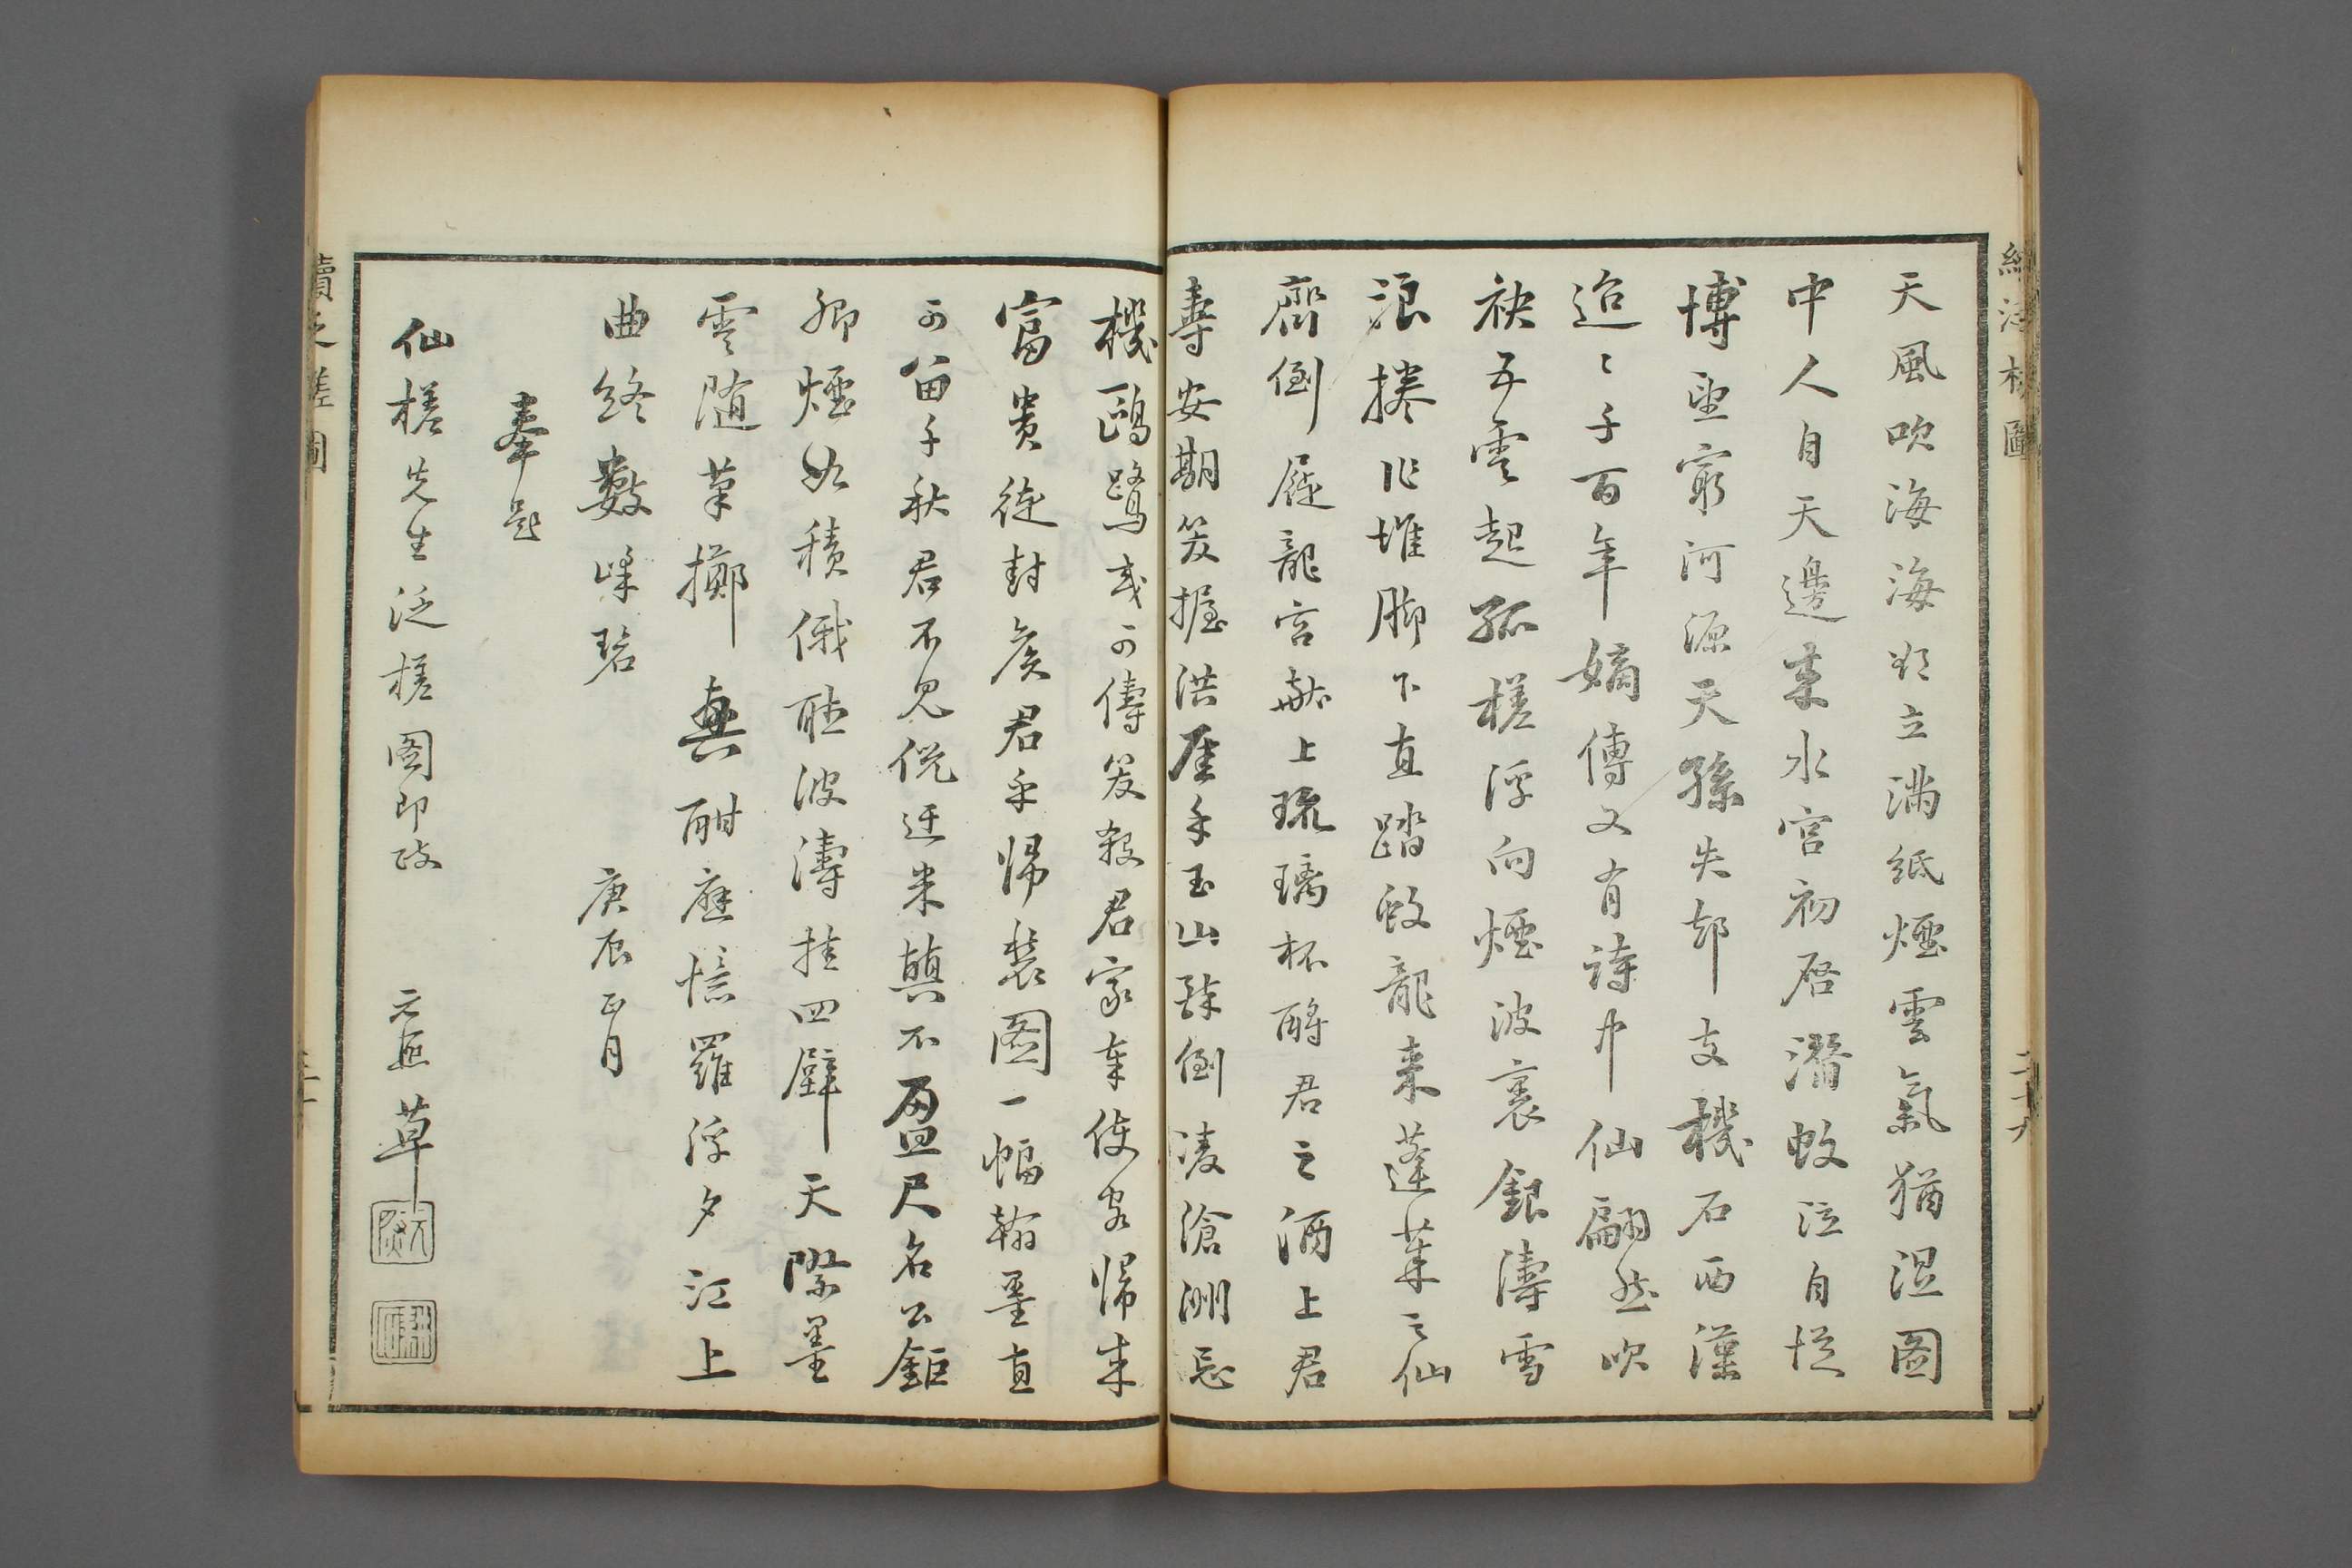 天風吹海海水立滿紙煙雲氣猶濕图
中人自天邊來水宮初啓潛蛟泣自從
博望窮河源天孫失却支機石西漢
迢〻千百年嫡傳又有詩中仙翩然吹
袂五雲起孤槎浮向煙波裏銀濤雪
浪捲作堆脚下直踏蛟龍来蓬萊之仙
齊倒屣龍宮獻上琉璃杯酹君之酒上君
壽安期笑握洪厓手玉山頹倒凌滄洲忘
機鷗鷺或可儔笑殺君家奉使客歸来
富貴徒封侯君乎歸裝图一幅翰墨直
可留千秋君不見倪迂米顛不盈尺名公鉅
卿煙如積俄聴波濤挂四壁天際墨
雲随筆擲興酣應憶羅浮夕江上
曲終數峰碧
庚辰正月
奉題
仙槎先生泛槎图即政
元熙草
續泛槎圖
二十九
續泛槎圖